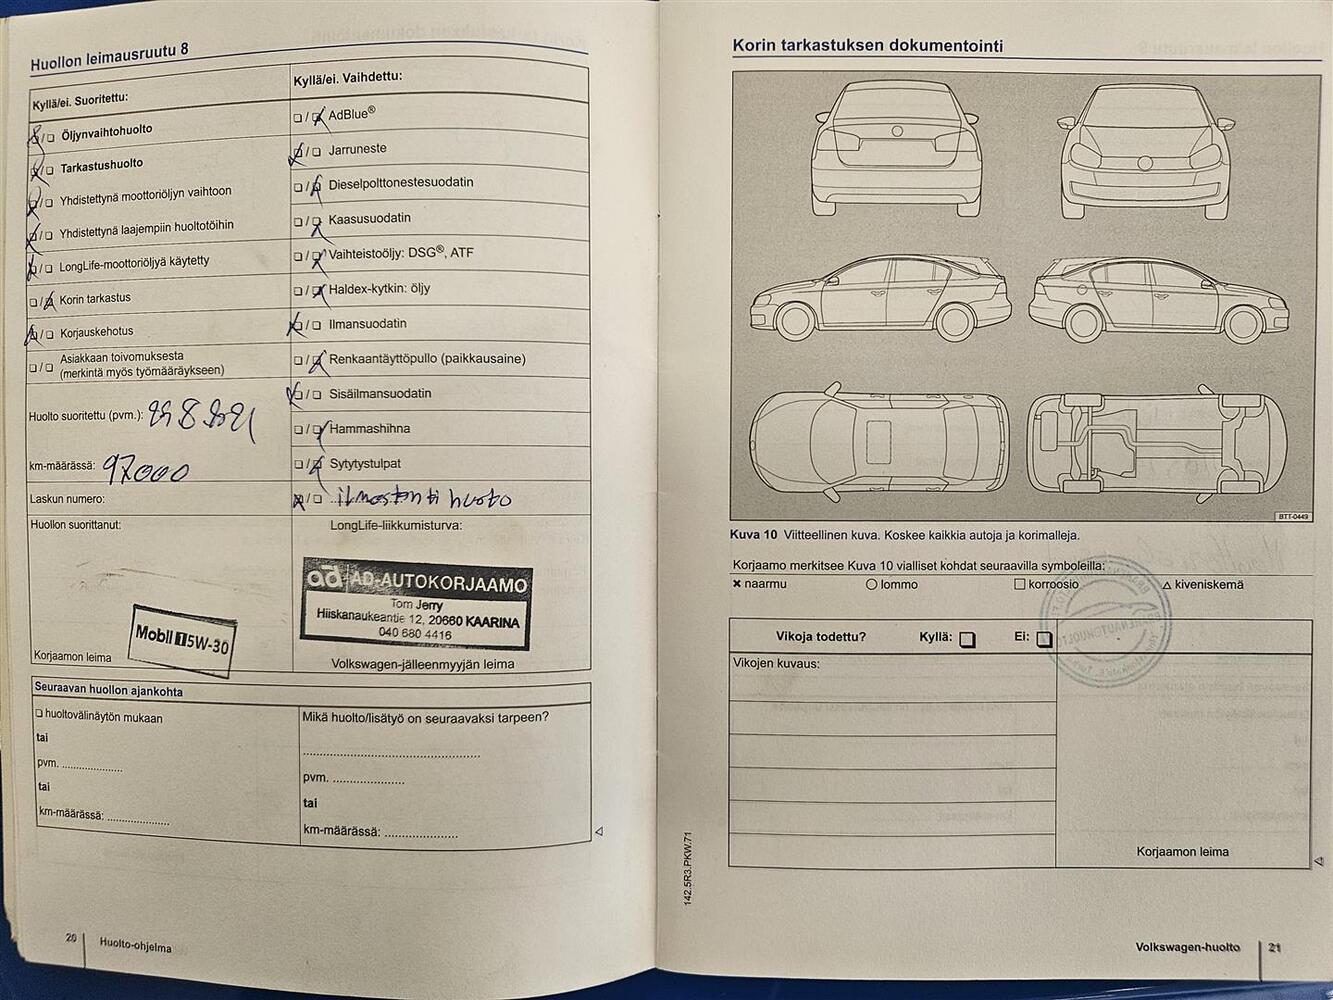 Huollon leimausruutu 8
Kyllä/ei. Suoritettu:
Öljynvaihtohuolto
Tarkastushuolto
Yhdistettynä moottoriöljyn vaihtoon
Yhdistettynä laajempiin huoltotöihin
LongLife-moottoriöljyä käytetty
Korin tarkastus
Korjauskehotus
Asiakkaan toivomuksesta
(merkintä myös työmääräykseen)
Huolto suoritettu (pvm.):
km-määrässä: 97000
Laskun numero:
Huollon suorittanut:
Mobil 1 5W-30
Korjaamon leima
Kyllä/ei. Vaihdettu:
AdBlue®
Jarruneste
Dieselpolttonestesuodatin
Kaasusuodatin
Vaihteistoöljy: DSG®, ATF
Haldex-kytkin: öljy
Ilmansuodatin
Renkaantäyttöpullo (paikkausaine)
Sisäilmansuodatin
Hammashihna
Sytytystulpat
LongLife-liikkumisturva:
ad AD-AUTOKORJAAMO
Tom Jerry
Hiiskanaukeantie 12, 20660 KAARINA
040 680 4416
Volkswagen-jälleenmyyjän leima
Seuraavan huollon ajankohta
huoltovälinäytön mukaan
tai
pvm. ....................
tai
km-määrässä: ....................
Mikä huolto/lisätyö on seuraavaksi tarpeen?
pvm. ....................
tai
km-määrässä: ....................
20 Huolto-ohjelma
Korin tarkastuksen dokumentointi
BTT-0449
Kuva 10 Viitteellinen kuva. Koskee kaikkia autoja ja korimalleja.
Korjaamo merkitsee Kuva 10 vialliset kohdat seuraavilla symboleilla:
naarmu lommo korroosio kiveniskemä
Vikoja todettu? Kyllä: Ei:
Vikojen kuvaus:
Korjaamon leima
142.5R3.PKW.71
Volkswagen-huolto 21